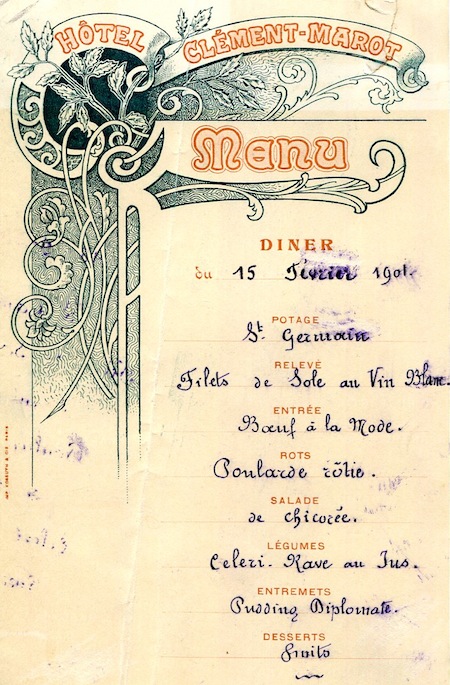 HÔTEL CLÉMENT-MAROT
Menu
DINER
du 15 Février 1901.
POTAGE
St Germain
RELEVÉ
Filets de Sole au Vin Blanc.
ENTRÉE
Bœuf à la Mode.
ROTS
Poularde rôtie.
SALADE
de Chicorée.
LÉGUMES
Celeri-Rave au Jus.
ENTREMETS
Pudding Diplomate.
DESSERTS
fruits